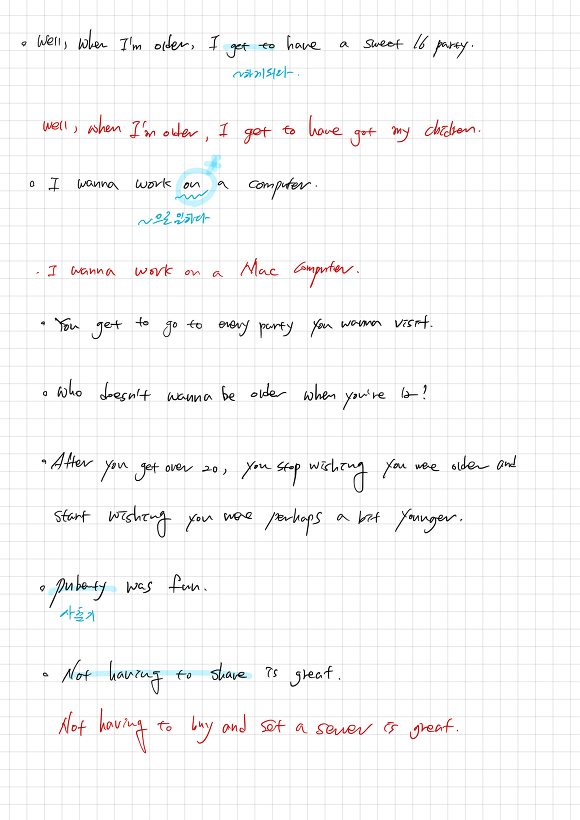 Well, when I'm older, I get to have a sweet 16 party.
~하게되다.
Well, when I'm older, I get to have got my children.
I wanna work on a computer.
~으로 일하다
I wanna work on a Mac computer.
You get to go to every party you wanna visit.
Who doesn't wanna be older when you're 12?
After you get over 20, you stop wishing you were older and
start wishing you were perhaps a bit younger.
puberty was fun.
사춘기
Not having to share is great.
Not having to buy and set a server is great.